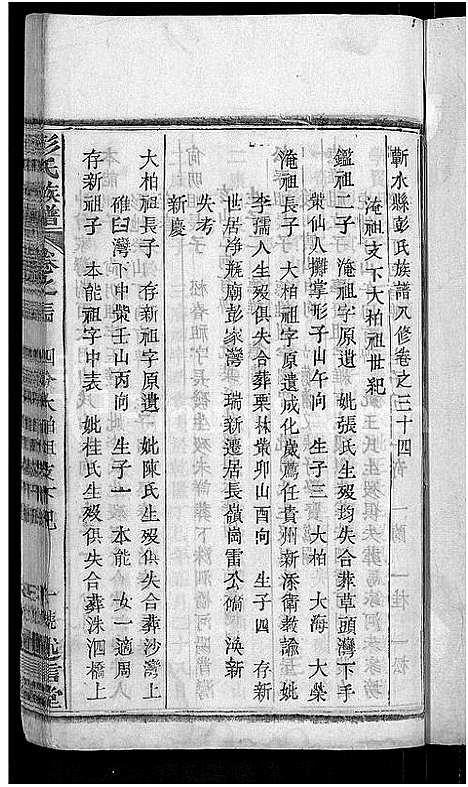 蘄水縣彭氏族譜八修卷之三十四
淹祖支下大柏祖世紀
鑑祖二子 淹祖字原遺 妣張氏生歿均失合葬草頭灣下手
棠仙人攤掌形子山午向 生子三 大柏 大海 大榮
淹祖長子 大柏祖字原遺成化歲薦任貴州新添衛教諭妣
李孺人生歿俱失合葬栗林棠卯山酉向 生子四 存新
世居淨瓶廟彭家灣 瑞新遷居長嶺崗雷不備 渙新
失考
新慶
大柏祖長子 存新祖字原遺 妣陳氏生歿俱失合葬沙灣上
碓臼灣下中營壬山丙向 生子一 本能 女一適周人
存新祖子 本能祖字中表 妣桂氏生歿俱失合葬洙泗橋上
彭氏族譜 卷之 大柏祖支下紀 一 述信堂